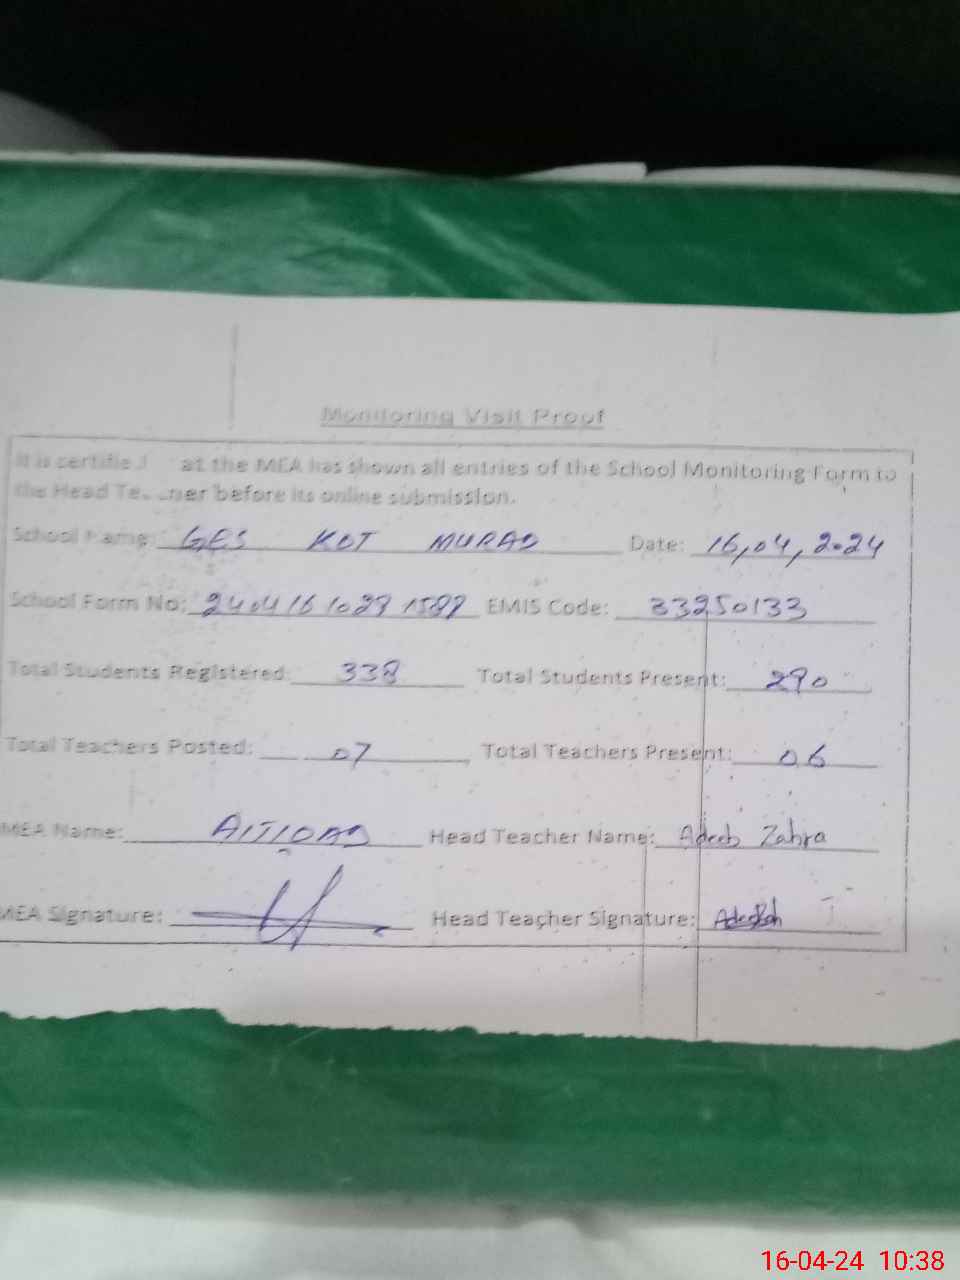 Monitoring Visit Proof
It is certified at the MEA has shown all entries of the School Monitoring Form to
the Head Teacher before its online submission.
School Name: GES KOT MURAD Date: 16,04,2024
School Form No: EMIS Code: 33250133
Total Students Registered: 338 Total Students Present: 290
Total Teachers Posted: 07 Total Teachers Present: 06
MEA Name: Head Teacher Name: Adeeb Zahra
MEA Signature: Head Teacher Signature:
16-04-24 10:38